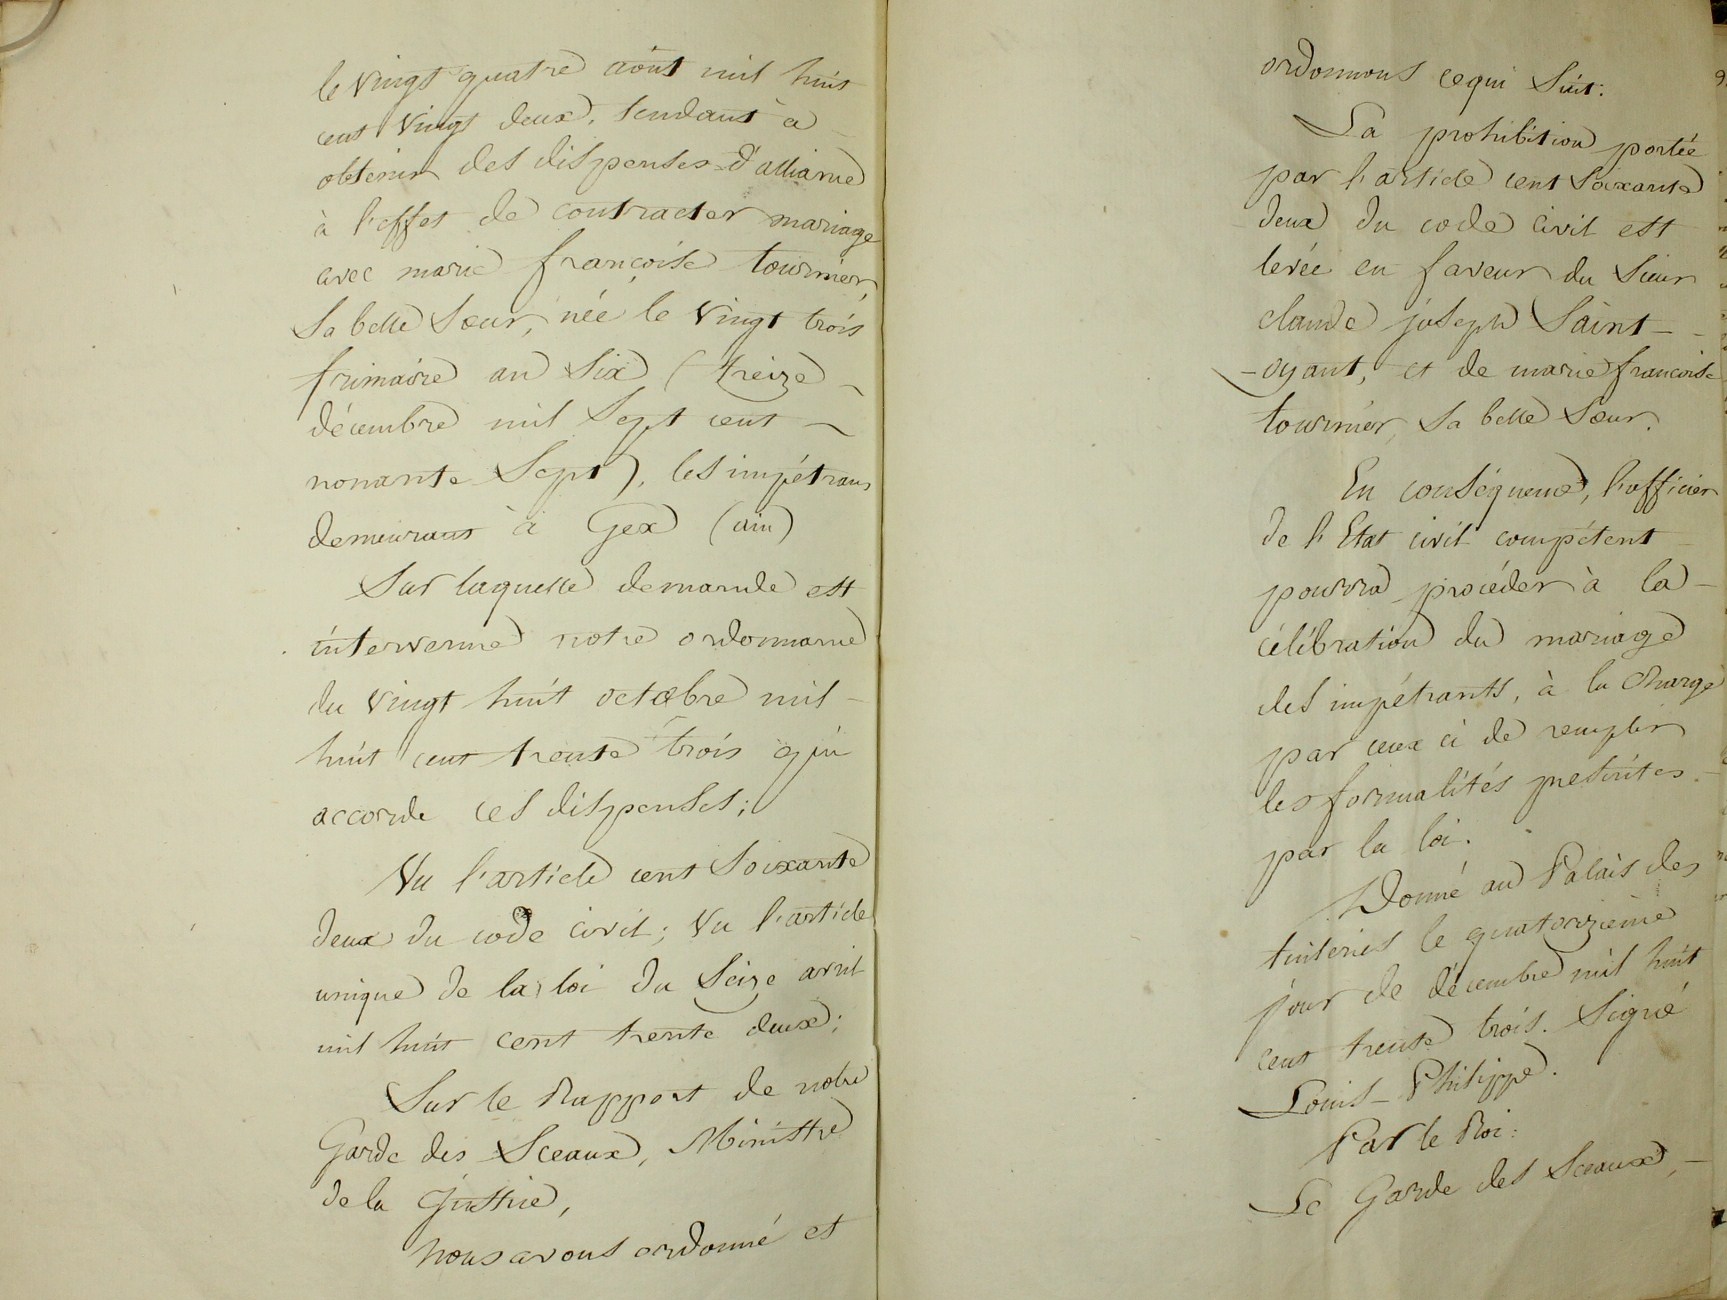 le vingt quatre août mil huit
cent vingt deux, tendant à
obtenir des dispenses d'alliance
à l'effet de contracter mariage
avec marie françoise tournier,
sa belle sœur, née le vingt trois
frimaire an six (treize
décembre mil sept cent
nonante sept), les impétrans
demeurant à Gex (ain)
Sur laquelle demande est
intervenue notre ordonnance
du vingt huit octobre mil
huit cent trente trois qui
accorde ces dispenses;
Vu l'article cent soixante
deux du code civil; Vu l'article
unique de la loi du seize avril
mil huit cent trente deux;
Sur le Rapport de notre
Garde des Sceaux, Ministre
de la Justice,
nous avons ordonné et
ordonnons ce qui suit:
La prohibition portée
par l'article cent soixante
deux du code civil est
levée en faveur du sieur
claude joseph Saint-
-oyant, et de marie françoise
tournier, sa belle sœur.
En conséquence, l'officier
de l'Etat civil compétent
pourra procéder à la
célébration du mariage
des impétrants, à la charge
par ceux ci de remplir
les formalités prescrites
par la loi.
Donné au Palais des
tuileries le quatorzième
jour de décembre mil huit
cent trente trois. Signé
Louis-Philippe.
Par le Roi:
Le Garde des Sceaux,